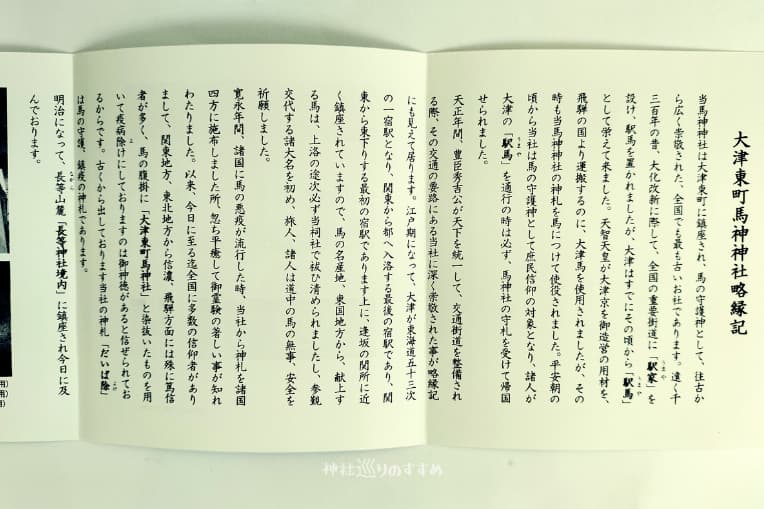 大津東町馬神神社略縁記
当馬神神社は大津東町に鎮座され、馬の守護神として、往古か
ら広く崇敬された、全国でも最も古いお社であります。遠く千
三百年の昔、大化改新に際して、全国の重要街道に「駅家」を
うまや
設け、駅馬を置かれましたが、大津はすでにその頃から「駅馬」
うまや
として栄えて来ました。天智天皇が大津京を御造営の用材を、
飛騨の国より運搬するのに、大津馬を使用されましたが、その
時も当馬神神社の神札を馬につけて使役されました。平安朝の
頃から当社は馬の守護神として庶民信仰の対象となり、諸人が
大津の「駅馬」を通行の時は必ず、馬神社の守札を受けて帰国
うまや
せられました。
天正年間、豊臣秀吉公が天下を統一して、交通街道を整備され
る際、その交通の要路にある当社に深く崇敬された事が略縁記
にも見えて居ります。江戸期になって、大津が東海道五十三次
の一宿駅となり、関東から都へ入洛する最後の宿駅であり、関
東から東下りする最初の宿駅であります上に、逢坂の関所に近
く鎮座されていますので、馬の名産地、東国地方から、献上す
る馬は、上洛の途次必ず当祠社で祓ひ清められましたし、参覲
交代する諸大名を初め、旅人、諸人は道中の馬の無事、安全を
祈願しました。
寛永年間、諸国に馬の悪疫が流行した時、当社から神札を諸国
四方に施布しました所、忽ち平癒して御霊験の著しい事が知れ
わたりました。以来、今日に至る迄全国に多数の信仰者があり
まして、関東地方、東北地方から信濃、飛騨方面には殊に篤信
者が多く、馬の腹掛に「大津東町馬神社」と染抜いたものを用
いて疫病除けにしておりますのは御神徳があると信ぜられてお
よ
るからです。古くから出しております当社の神札「だいば除」
よけ
は馬の守護、鎮疫の神札であります。
明治になって、長等山麓「長等神社境内」に鎮座され今日に及
ながら
んでおります。
用)
用)
用)
神社巡りのすすめ